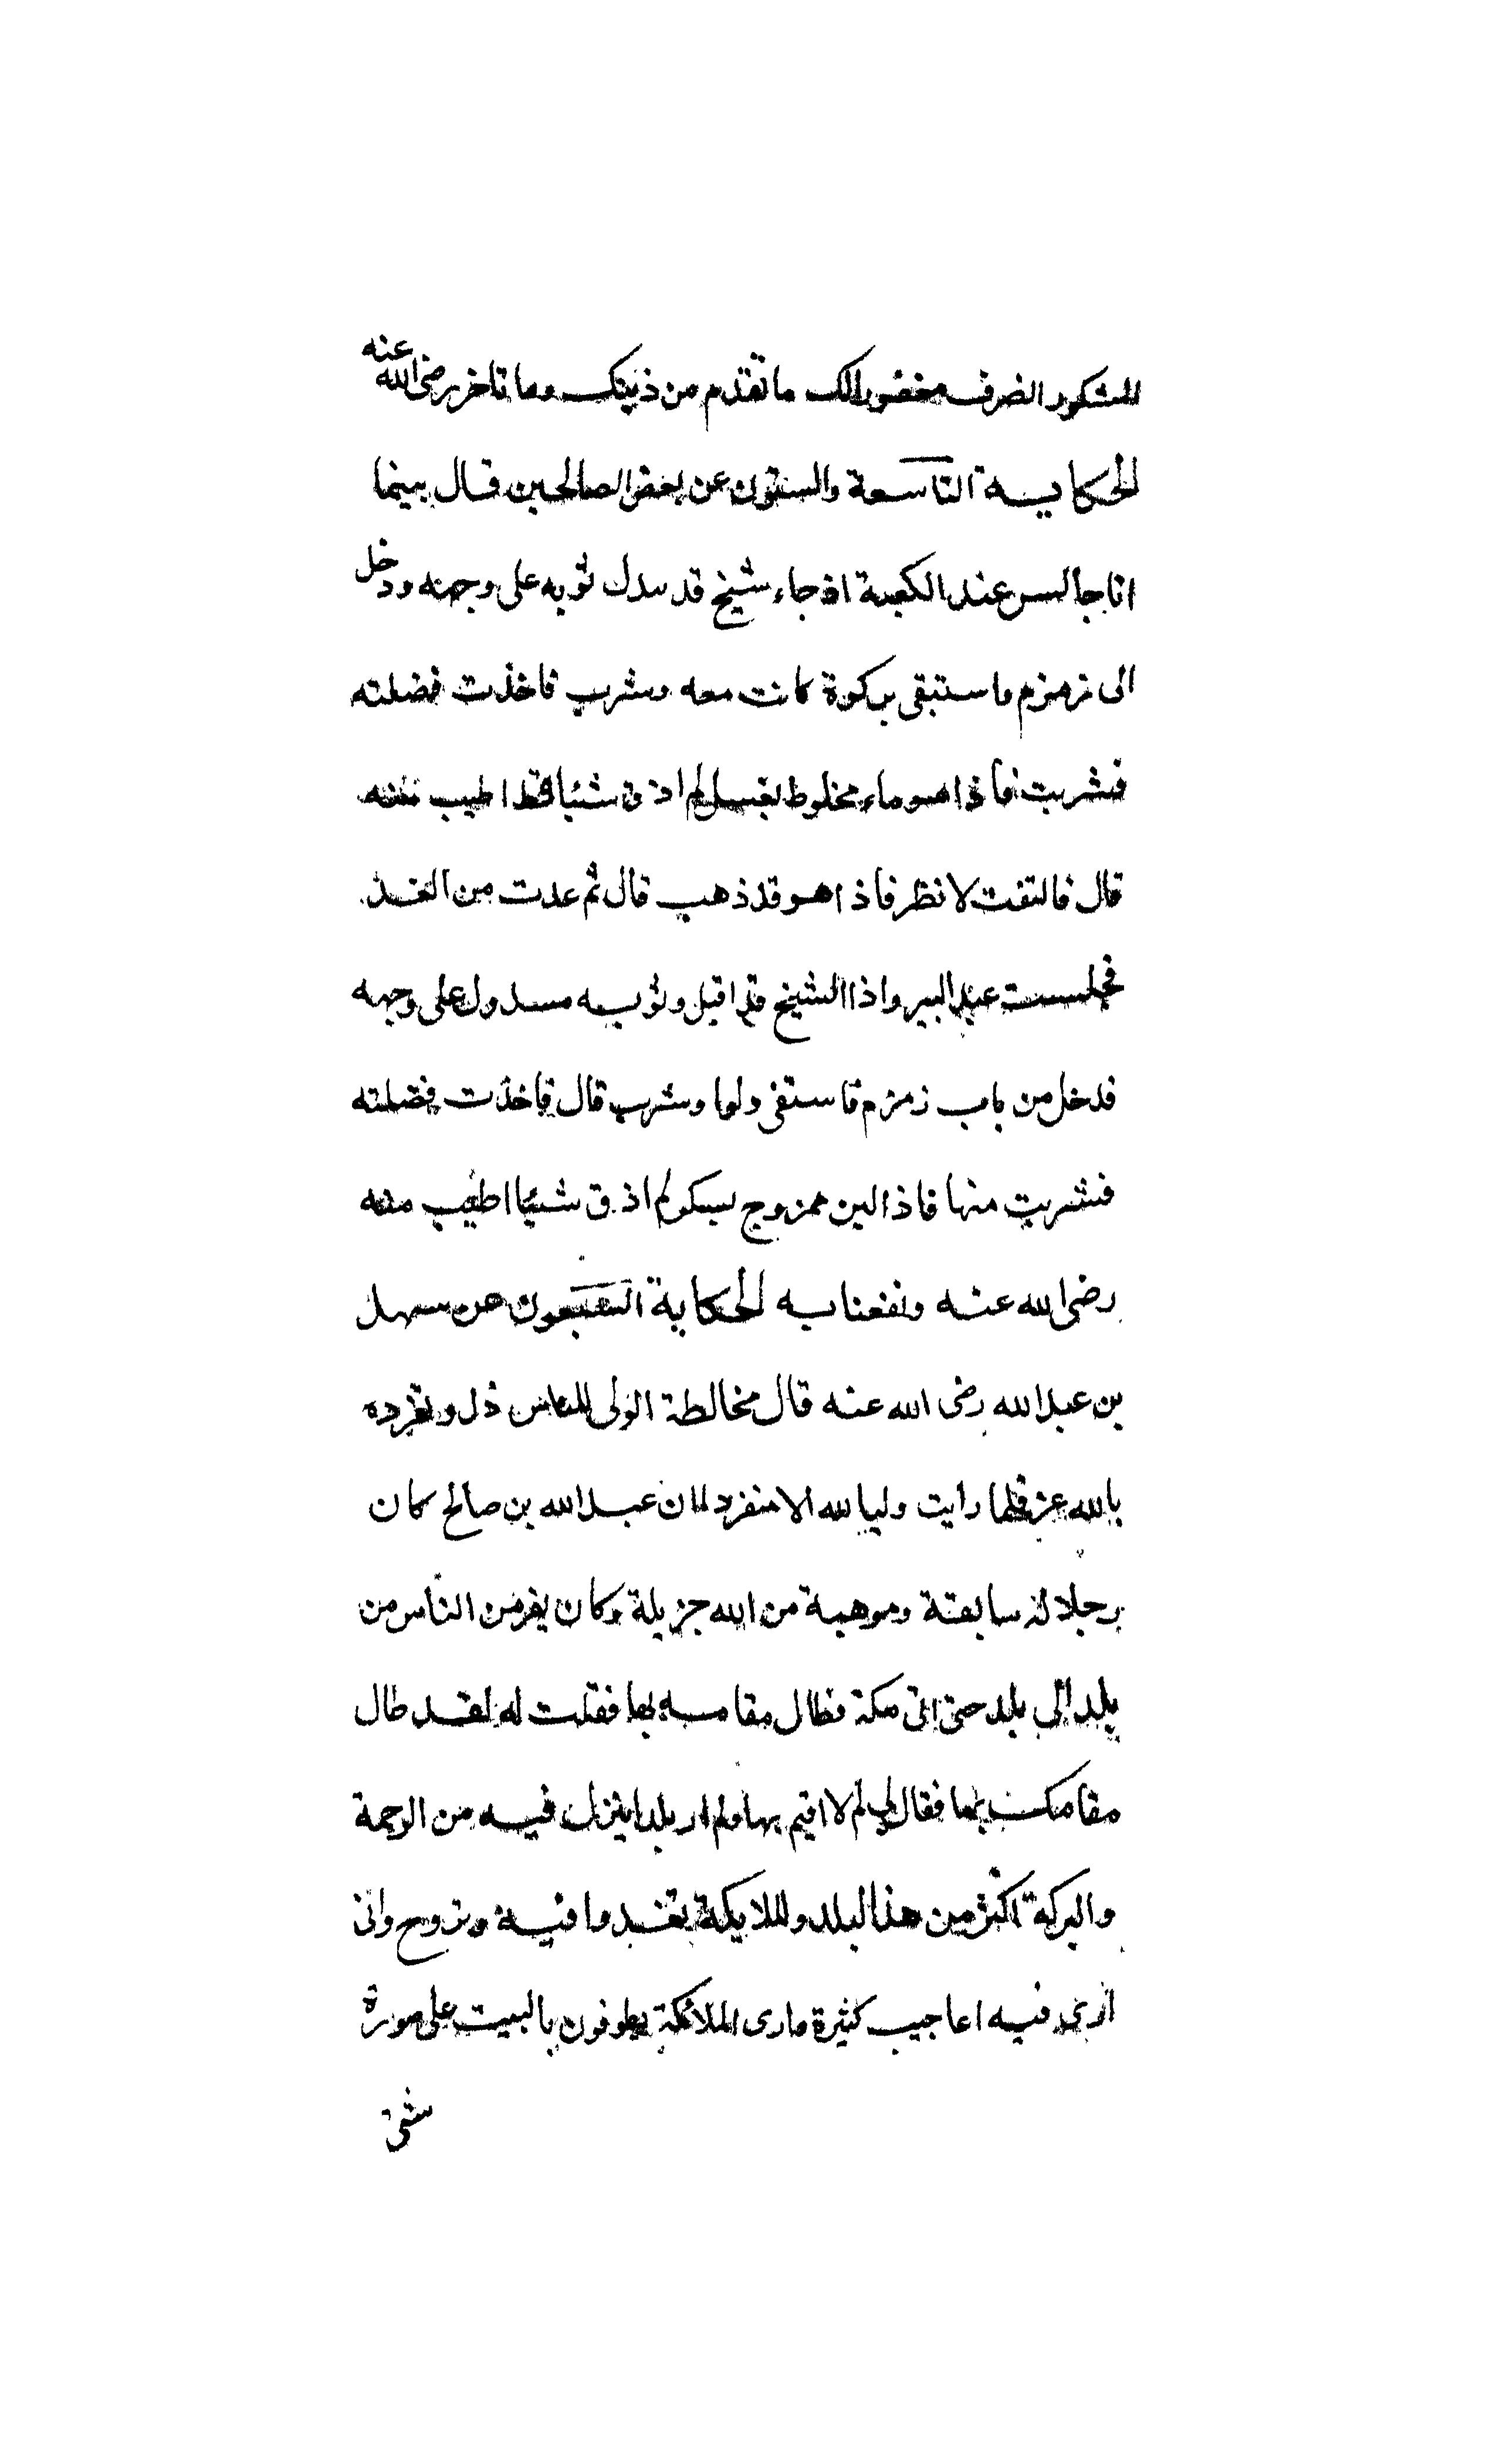 للشكور انصرف مغفورا لك ما تقدم من ذنبك وما تاخر رضى الله عنه
الحكاية التاسعة والستون عن بعض الصالحين قال بينما
انا جالس عند الكعبة اذ جاء شيخ قد سدل ثوبه على وجهه ودخل
الى زمزم فاستقى بركوة كانت معه وشرب فاخذت فضلته
فشربت فاذا هو ماء مخلوط بعسل لم اذق شئيا قط اطيب منه
قال فالتفت لانظر فاذا هو قد ذهب قال ثم عدت من الغد
فجلست عند البير واذا الشيخ قد اقبل وثوبه مسدول على وجهه
فدخل من باب زمزم فاستقى دلوا وشرب قال فاخذت فضلته
فشربت منها فاذا لبن ممزوج بسكر لم اذق شئيا اطيب منه
رضى الله عنه ونفعنا به الحكاية السبعون عن سهل
بن عبد الله رضى الله عنه قال مخالطة الولى للناس ذل وتفرده
بالله عز قلما رايت وليا لله الا منفردا ان عبد الله بن صالح كان
رجلا له سابقة وموهبة من الله جزيلة وكان يفر من الناس من
بلد الى بلد حتى اتى مكة فطال مقامه بها فقلت له لقد طال
مقامك بها فقال لى لم لا اقيم بها ولم ار بلدا ينزل فيه من الرحمة
والبركة اكثر من هذا البلد والملايكة تغدوا فيه وتروح وانى
ارى فيه اعاجيب كثيرة وارى الملائكة يطوفون بالبيت على صورة
شتى